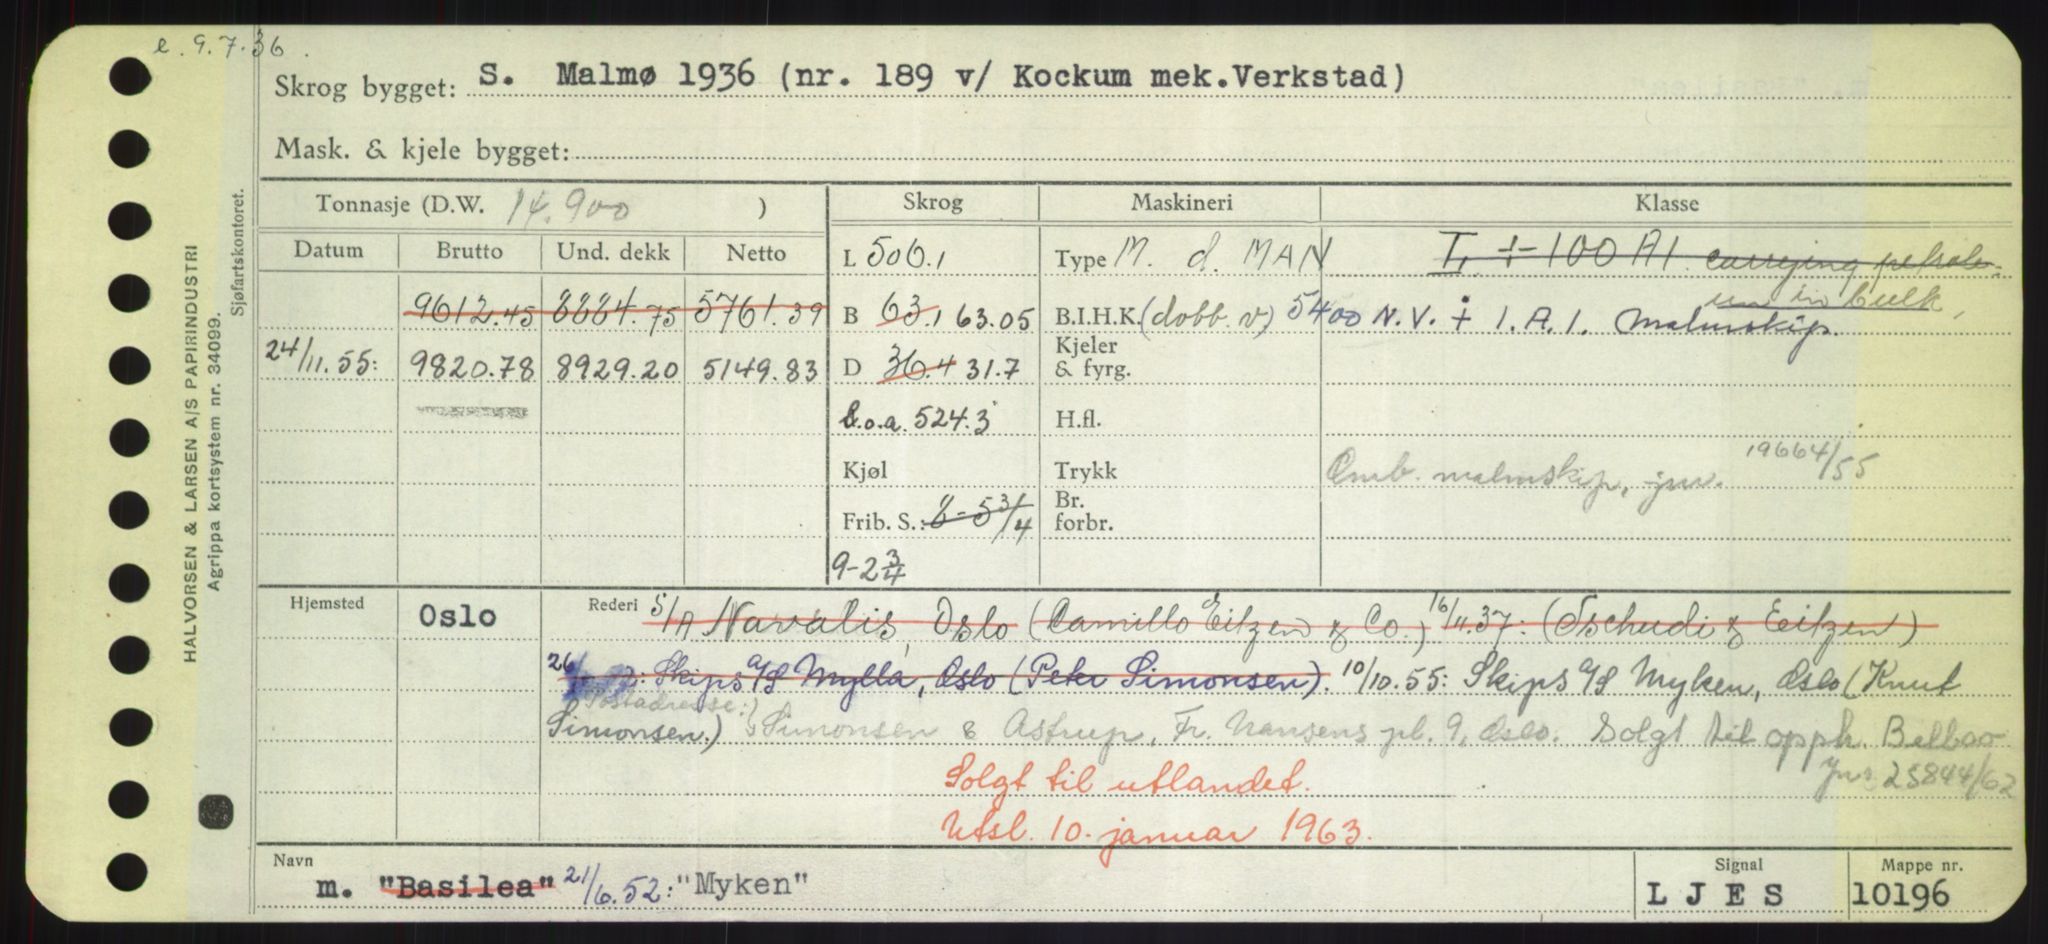 e. 9.7.36.
Skrog bygget: S. Malmø 1936 (nr. 189 v/ Kockum mek.Verkstad)
Mask. & kjele bygget:
Tonnasje (D.W. 14.900 )
Skrog
Maskineri
Klasse
Datum Brutto Und. dekk Netto
L 506.1
Type M. d. MAN
L + 100 A1. carrying petrole-
um in bulk,
9612.45 8884.75 5761.39
B 63.1 63.05
B.I.H.K. (dobb. v) 5400
N.V. + 1.A.1. Malmskip.
24/11.55: 9820.78 8929.20 5149.83
D 36.4 31.7
Kjeler
& fyrg.
L.o.a. 524.3
H.fl.
Kjøl
Trykk
Omb. malmskip, jnr. 19664/55
Frib. S.: 8-5 3/4
Br.
forbr.
9-2 3/4
Hjemsted Oslo
Rederi S/A Navalis, Oslo (Camillo Eitzen & Co.) 16/11.37: (Tschudi & Eitzen)
26/ Skips A/S Mylla, Oslo (Peter Simonsen). 10/10.55: Skips A/S Myken, Oslo (Knut
Simonsen.) (Postadresse:) Simonsen & Astrup, Fr. Nansens pl. 9, Oslo. Solgt til opph. Bilbao
jnr 25844/62
Solgt til utlandet.
Utsl. 10. januar 1963.
Navn
m. "Basilea" 21/6.52: "Myken"
Signal
LJES
Mappe nr.
10196
HALVORSEN & LARSEN A/S PAPIRINDUSTRI
Agrippa kortsystem nr. 34099.
Sjøfartskontoret.